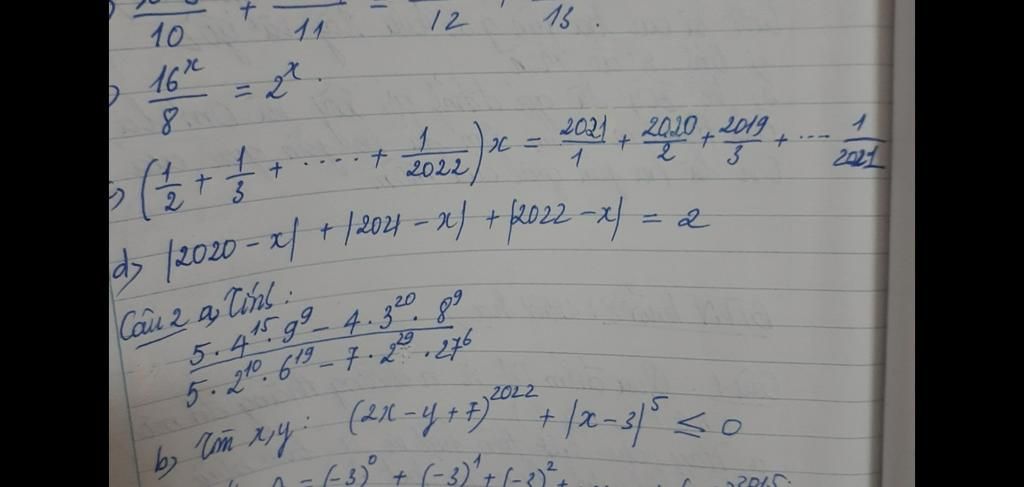 10 + 11 = 12 13.
) 16^x / 8 = 2^x.
) (1/2 + 1/3 + .... + 1/2022) x = 2021/1 + 2020/2 + 2019/3 + ... 1/2021
d) |2020 - x| + |2021 - x| + |2022 - x| = 2
Câu 2 a, Tính :
5 · 4^15 · 9^9 - 4 · 3^20 · 8^9
5 · 2^10 · 6^19 - 7 · 2^29 · 27^6
b, Tìm x, y : (2x - y + 7)^2022 + |x - 3|^5 ≤ 0
= (-3)^0 + (-3)^1 + (-3)^2 + 2015